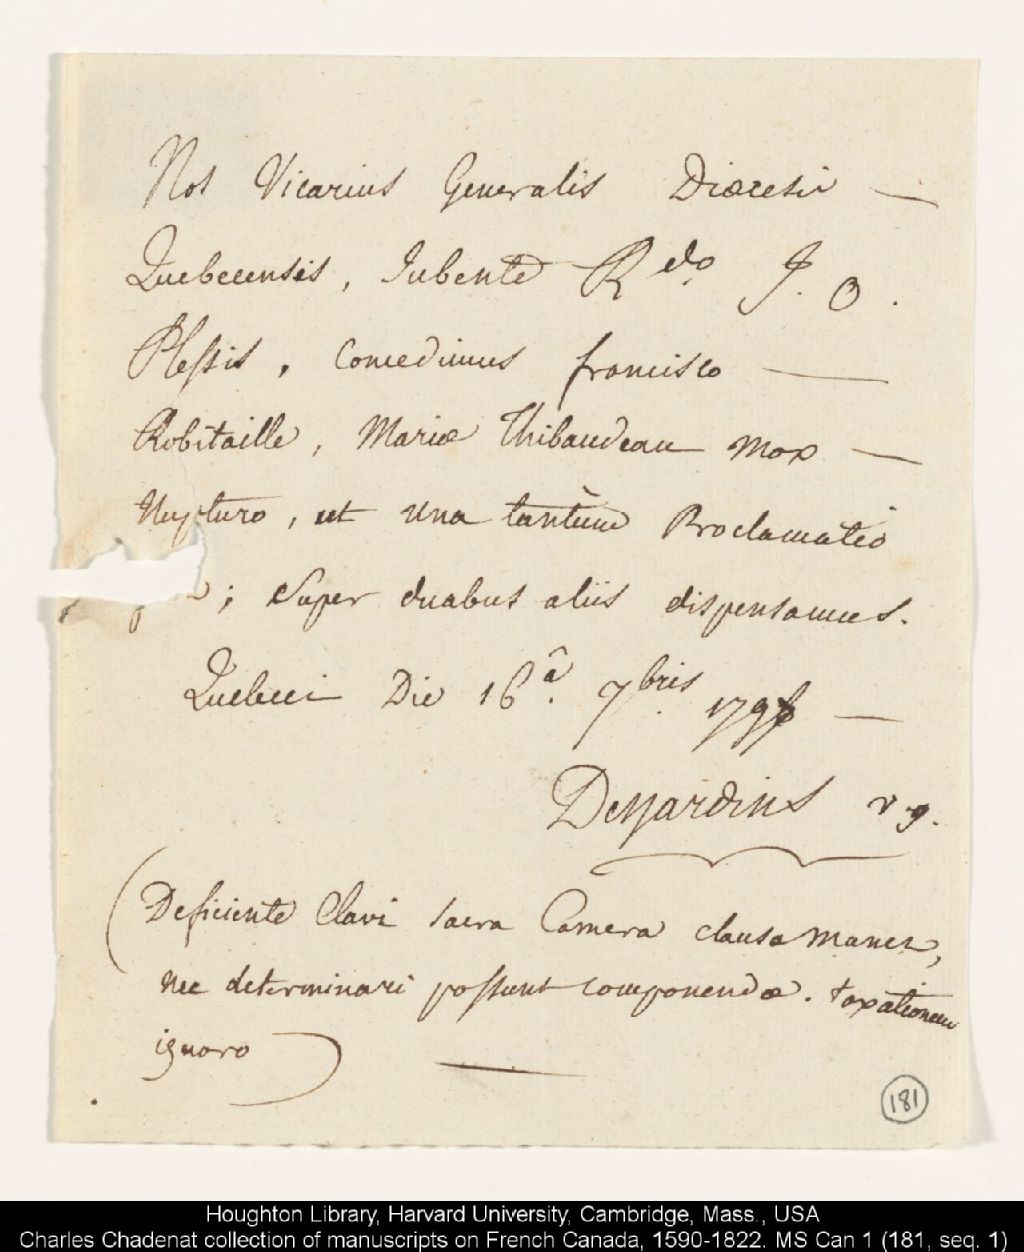 Nos Vicarius Generalis Diœcesis —
Quebecensis, Jubente R.do J. O.
Plessis, Concedimus francisco —
Robitaille, Mariæ Thibaudeau mox —
Nupturo, ut una tantùm Proclamatio
; Super duabus aliis dispensamus.
Quebeci Die 16.â 7.bris —
Desjardins v g.
(Deficiente Clavi sacra Camera clausa manet,
nec determinari possunt componendæ. taxationem
ignoro) —
181
Houghton Library, Harvard University, Cambridge, Mass., USA
Charles Chadenat collection of manuscripts on French Canada, 1590-1822. MS Can 1 (181, seq. 1)